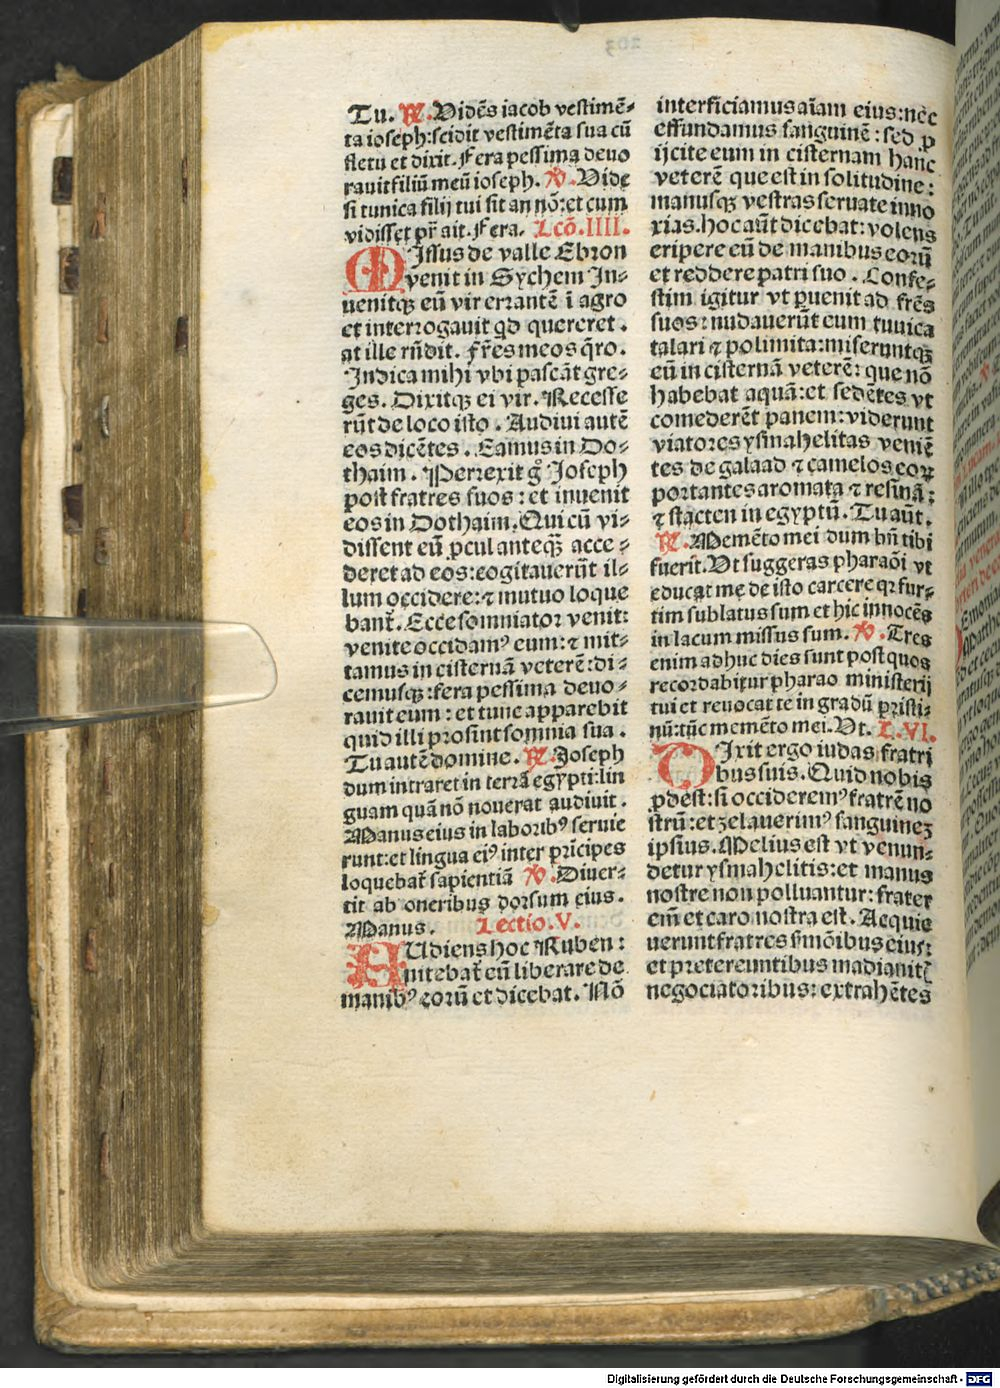 Tu. ℟. Vidēs iacob vestimē⸗
ta ioseph:scidit vestimēta sua cū
fletu et dixit. Fera pessima deuo
rauit filiū meū ioseph. ℣. Vide
si tunica filij tui sit an nō:et cum
vidisset pr̄ ait. Fera. Lcō. IIII.
MIssus de valle Ebron
venit in Sychem In⸗
uenitqꝫ eū vir errantē ī agro
et interrogauit qd quereret.
at ille rn̄dit. Fr̄es meos q̄ro.
Indica mihi vbi pascāt gre⸗
ges. Dixitqꝫ ei vir. Recesse
rūt de loco isto. Audiui autē
eos dicētes. Eamus in Do⸗
thaim. Perrexit gͦ Joseph
post fratres suos: et inuenit
eos in Dothaim. Qui cū vi⸗
dissent eū ꝓcul anteqꝫ acce⸗
deret ad eos: cogitauerūt il⸗
lum occidere: ⁊ mutuo loque
bant̄. Ecce somniator venit:
venite occidamꝰ eum: ⁊ mit⸗
tamus in cisternā veterē: di⸗
cemusqꝫ: fera pessima deuo⸗
rauit eum: et tunc apparebit
quid illi prosint somnia sua.
Tu autē domine. ℟. Joseph
dum intraret in terrā egypti: lin
guam quā nō nouerat audiuit.
Manus eius in laboribꝰ seruie
runt: et lingua eiꝰ inter prīcipes
loquebat̄ sapientiā ℣. Diuer⸗
tit ab oneribus dorsum eius.
Manus. Lectio. V.
AUdiens hoc Ruben:
nitebat̄ eū liberare de
manibꝰ eorū et dicebat. Nō
interficiamus aīam eius: nec
effundamus sanguinē: sed ꝓ
ijcite eum in cisternam hanc
veterē que est in solitudine:
manusqꝫ vestras seruate inno
xias. hoc aūt dicebat: volens
eripere eū de manibus eorū
et reddere patri suo. Confe⸗
stim igitur vt ꝑuenit ad fr̄es
suos: nudauerūt eum tunica
talari ⁊ polimita: miseruntqꝫ
eū in cisternā veterē: que nō
habebat aquā: et sedētes vt
comederēt panem: viderunt
viatores ysmahelitas veniē
tes de galaad ⁊ camelos eoꝝ
portantes aromata ⁊ resinā:
⁊ stacten in egyptū. Tu aūt.
℟. Memēto mei dum bn̄ tibi
fuerit. Vt suggeras pharaōi vt
educat me de isto carcere qꝛ fur⸗
tim sublatus sum et hic innocēs
in lacum missus sum. ℣. Tres
enim adhuc dies sunt post quos
recordabitur pharao ministerij
tui et reuocat te in gradū pristi⸗
nū: tūc memēto mei. Vt. L. VI.
DIxit ergo iudas fratri
bus suis. Quid nobis
ꝓdest: si occideremꝰ fratrē no
strū: et zelauerimꝰ sanguineꝫ
ipsius. Melius est vt venun⸗
detur ysmahelitis: et manus
nostre non polluantur: frater
em̄ et caro nostra est. Acquie
uerunt fratres s̄mōibus eius:
et pretereuntibus madianitꝭ
negociatoribus: extrahētes
Digitalisierung gefördert durch die Deutsche Forschungsgemeinschaft - DFG